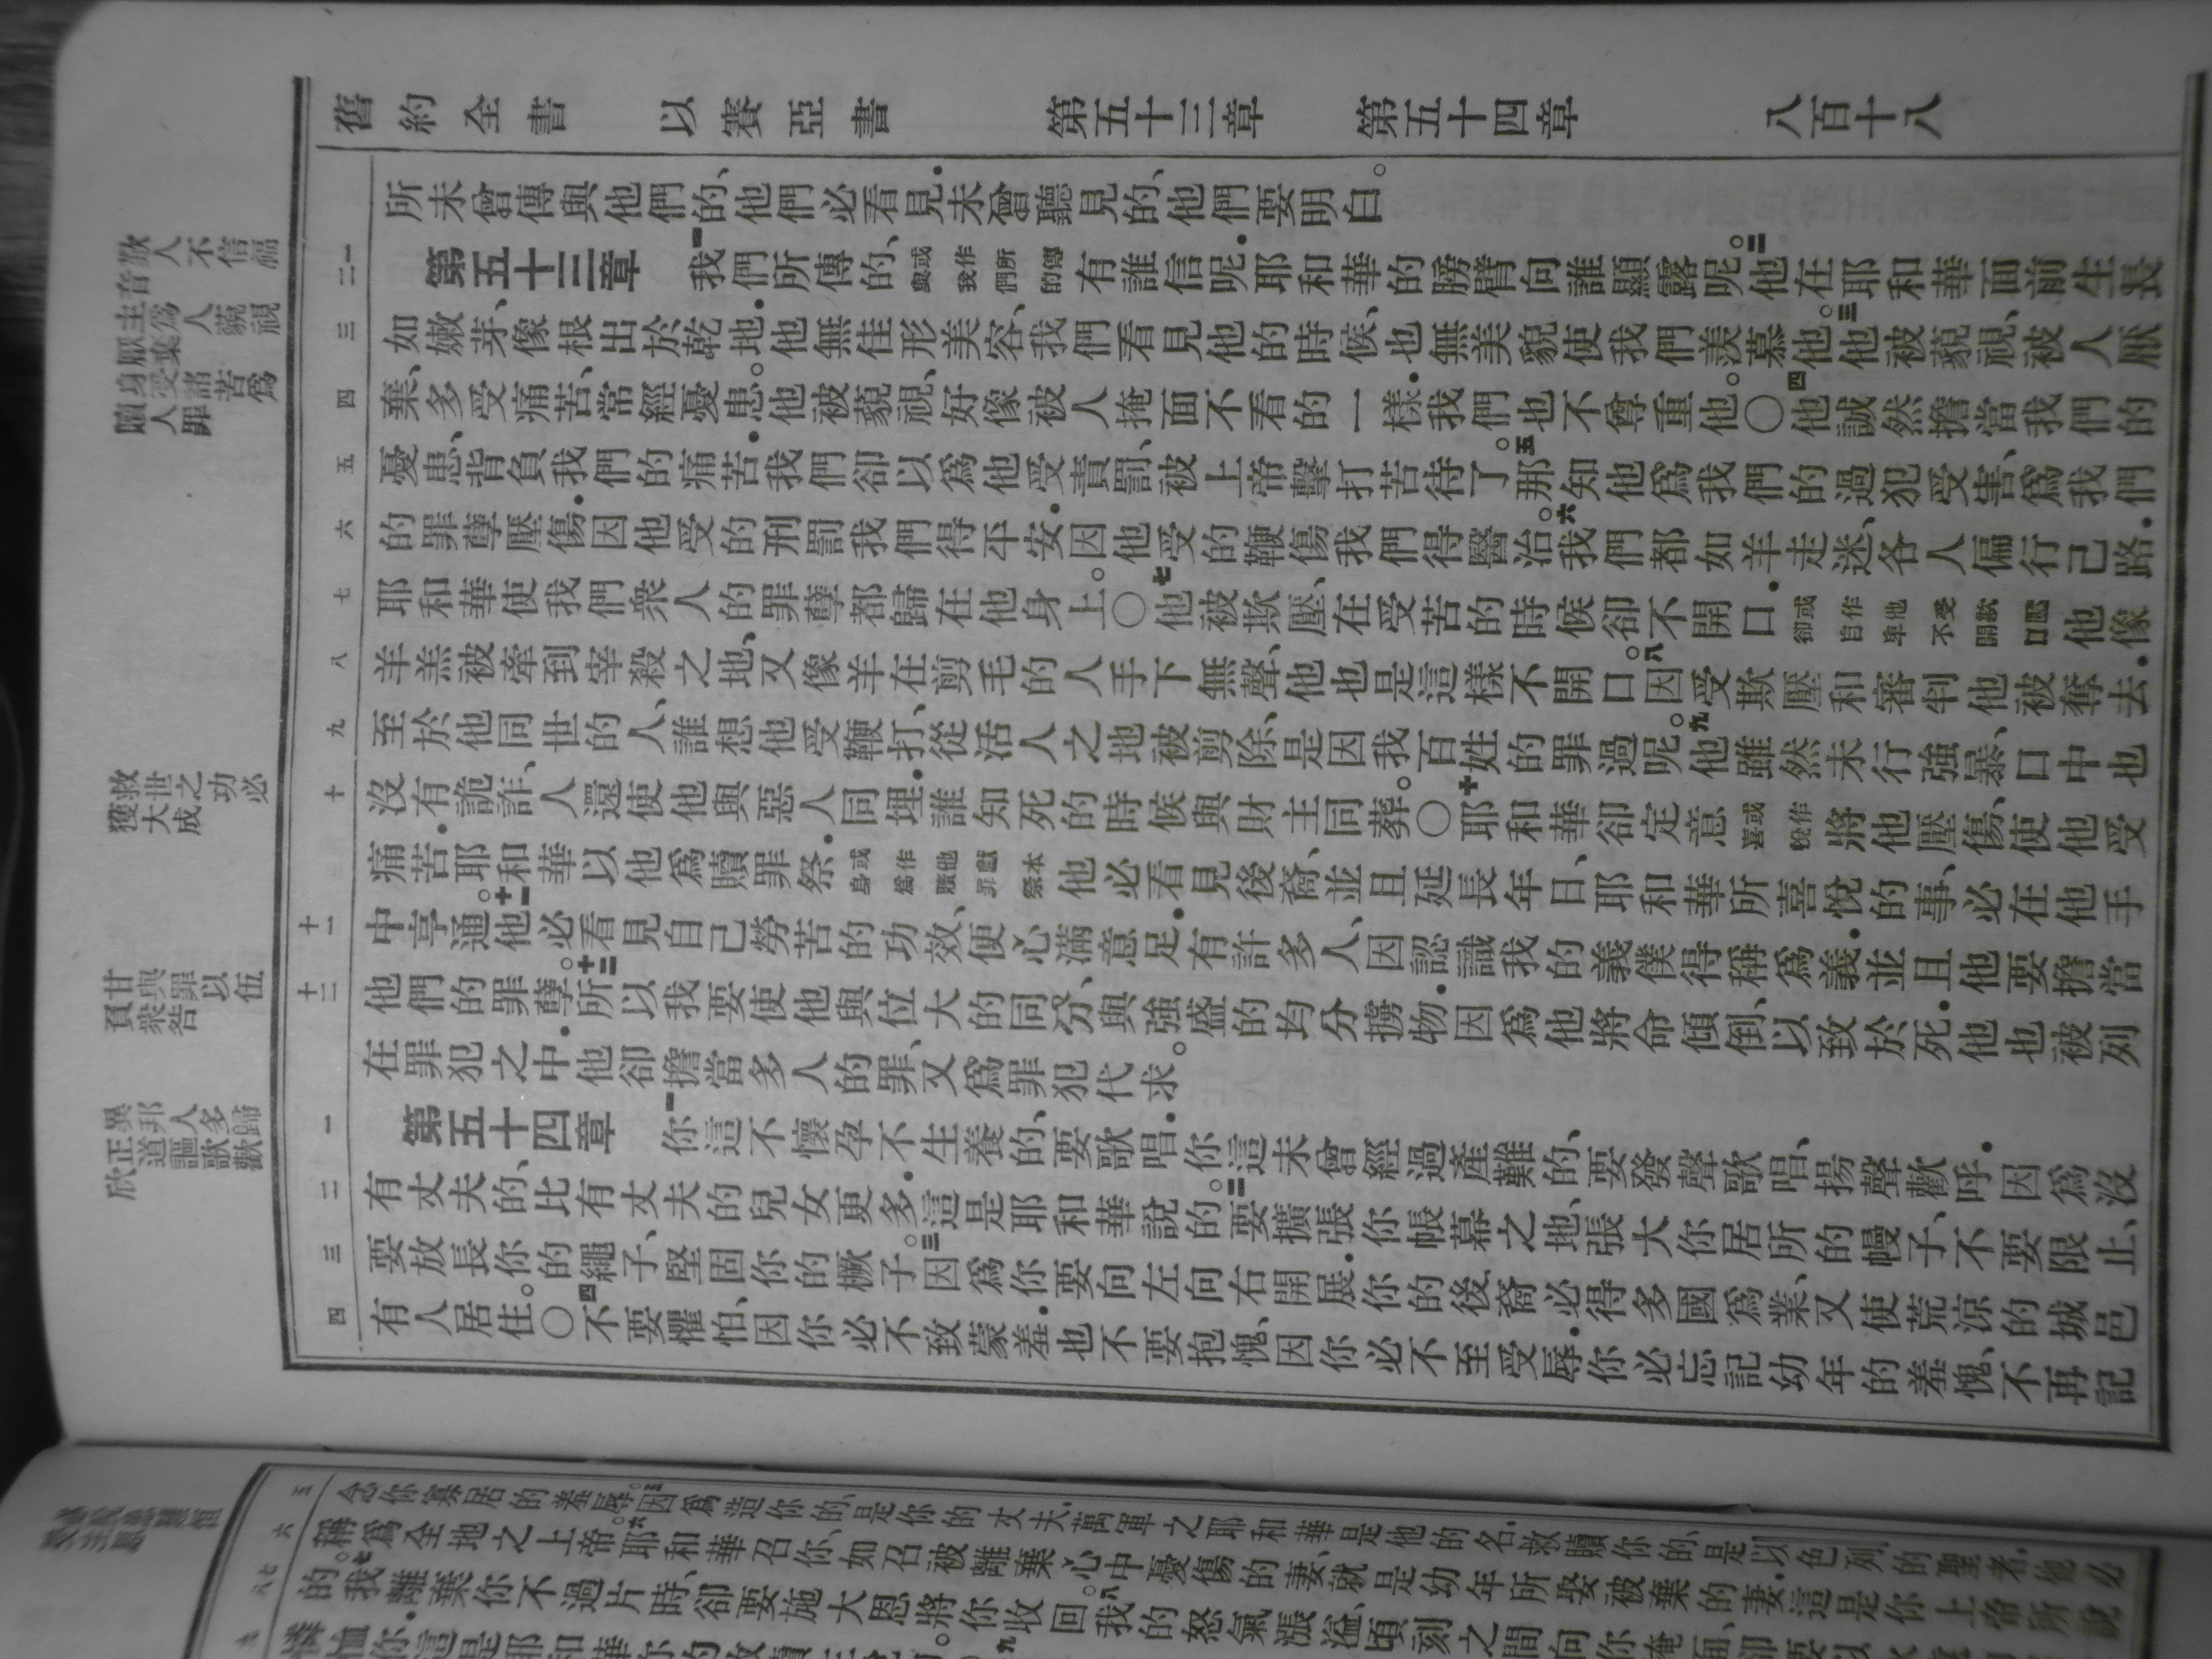 舊約全書 以賽亞書 第五十三章 第五十四章 八百十八
所未曾傳與他們的、他們必看見．未曾聽見的、他們要明白。
第五十三章 一我們所傳的、或作我們所傳與的有誰信呢．耶和華的膀臂向誰顯露呢。二他在耶和華面前生長
如嫩芽、像根出於乾地．他無佳形美容、我們看見他的時候、也無美貌使我們羨慕他。三他被藐視、被人厭
棄、多受痛苦、常經憂患。他被藐視、好像被人掩面不看的一樣．我們也不尊重他。〇四他誠然擔當我們的
憂患、背負我們的痛苦．我們卻以爲他受責罰、被上帝擊打苦待了。五那知他爲我們的過犯受害、爲我們
的罪孽壓傷．因他受的刑罰我們得平安．因他受的鞭傷我們得醫治。六我們都如羊走迷、各人偏行己路．
耶和華使我們衆人的罪孽都歸在他身上。〇七他被欺壓、在受苦的時候卻不開口．或作他受欺壓卻自卑不開口他像
羊羔被牽到宰殺之地、又像羊在剪毛的人手下無聲、他也是這樣不開口。八因受欺壓和審判他被奪去．
至於他同世的人、誰想他受鞭打、從活人之地被剪除、是因我百姓的罪過呢。九他雖然未行強暴、口中也
沒有詭詐、人還使他與惡人同埋．誰知死的時候與財主同葬。〇十耶和華卻定意或作喜悅將他壓傷、使他受
痛苦．耶和華以他爲贖罪祭．或作他獻本身爲贖罪祭他必看見後裔、並且延長年日、耶和華所喜悅的事、必在他手
中亨通。十一他必看見自己勞苦的功效、便心滿意足．有許多人、因認識我的義僕得稱爲義．並且他要擔當
他們的罪孽。十二所以我要使他與位大的同分、與強盛的均分擄物．因爲他將命傾倒、以致於死．他也被列
在罪犯之中．他卻擔當多人的罪、又爲罪犯代求。
第五十四章 一你這不懷孕不生養的、要歌唱．你這未曾經過產難的、要發聲歌唱、揚聲歡呼．因爲沒
有丈夫的、比有丈夫的兒女更多．這是耶和華說的。二要擴張你帳幕之地、張大你居所的幔子、不要限止、
要放長你的繩子、堅固你的橛子。三因爲你要向左向右開展．你的後裔、必得多國爲業、又使荒涼的城邑
有人居住。〇四不要懼怕、因你必不致蒙羞．也不要抱愧、因你必不至受辱．你必忘記幼年的羞愧、不再記
二一
三
四
五
六
七
八
九
十
十一
十二
一
二
三
四
歎人不信福音
主爲人藐視厭棄
身受諸苦爲人贖罪
救世之功必獲大成
甘與罪伍以負衆咎
異邦人多歸正道謳歌歡欣
念你寡居的羞辱。五因爲造你的、是你的丈夫．萬軍之耶和華是他的名．救贖你的、是以色列的聖者．他必
稱爲全地之上帝。六耶和華召你、如召被離棄心中憂傷的妻、就是幼年所娶被棄的妻．這是你上帝所說
的。七我離棄你不過片時、卻要施大恩將你收回。八我的怒氣漲溢、頃刻之間向你掩面、卻要以永